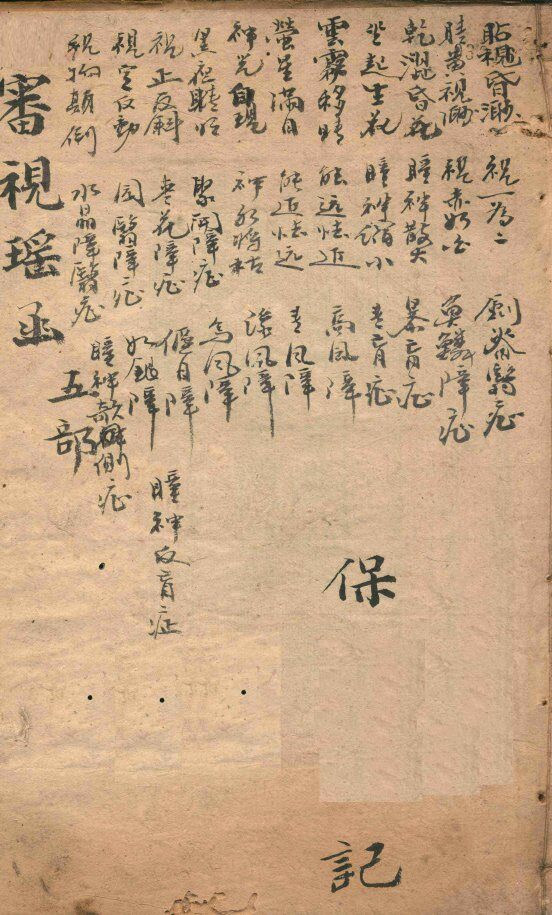 視昏渺 視一為二 劍脊翳症
睛黃視渺 視赤如白 魚鱗障症
乾澀昏花 瞳神散大 暴盲症
坐起生花 瞳神縮小 青盲症
雲霧移睛 能远怯近 高風障
螢星滿目 能近怯远 青风障
神光自現 神水将枯 綠風障
黑夜睛明 聚開障症 烏风障
視正反斜 枣花障症 偃月障 瞳神反背症
視定反動 圆翳障症 如銀障
視物顛倒 水晶障翳症 瞳神欹側症
審視瑤函 五部
保記